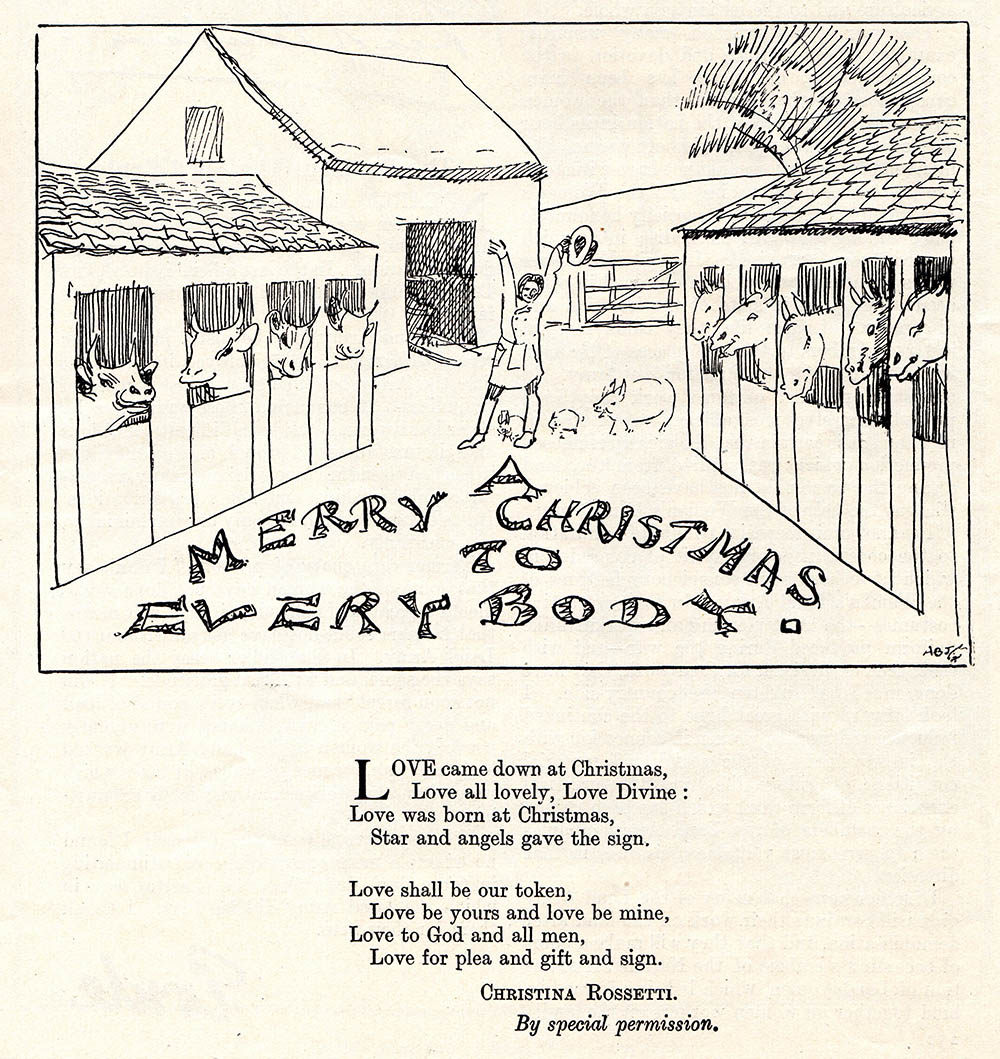 A
MERRY CHRISTMAS
TO
EVERYBODY.
LOVE came down at Christmas,
Love all lovely, Love Divine :
Love was born at Christmas,
Star and angels gave the sign.
Love shall be our token,
Love be yours and love be mine,
Love to God and all men,
Love for plea and gift and sign.
CHRISTINA ROSSETTI.
By special permission.